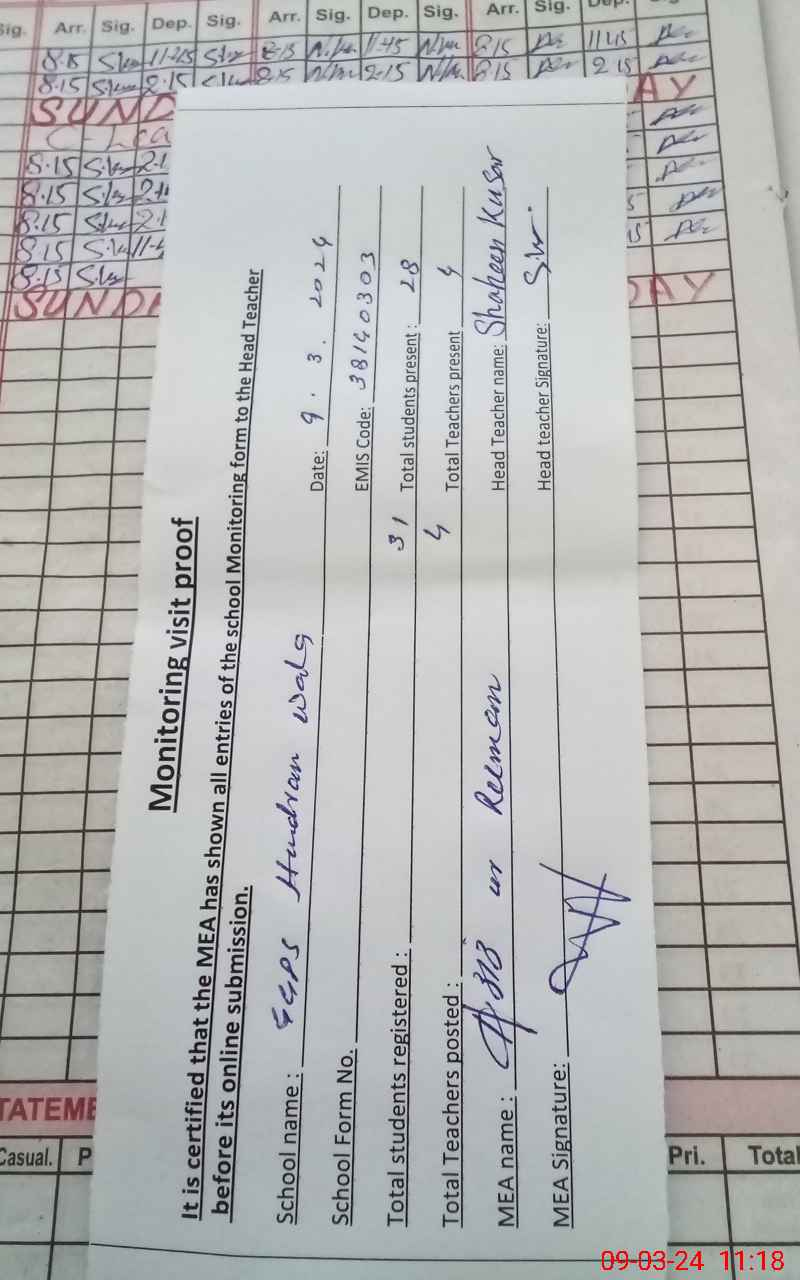 Sig. Arr. Sig. Dep. Sig. Arr. Sig. Dep. Sig. Arr. Sig. Dep.
8.15 11-45 8-15 11-45 8.15 11 45
8.15 2.15 8.15 2-15 8.15 2 15
SUND AY
8.15 2.1
8.15
8.15 2.1
8.15 11-4
8.15
SUNDA DAY
Monitoring visit proof
It is certified that the MEA has shown all entries of the school Monitoring form to the Head Teacher
before its online submission.
School name : GGPS Hundran wala Date: 9 . 3 . 2024
School Form No. EMIS Code: 38140303
Total students registered : 31 Total students present : 28
Total Teachers posted : 4 Total Teachers present 4
MEA name : ur Rehman Head Teacher name: Shaheen Kusar
MEA Signature: Head teacher Signature:
TATEME
Casual. P Pri. Total
09-03-24 11:18